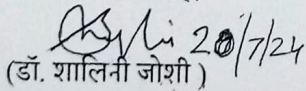 20/7/24
(डॉ. शालिनी जोशी )